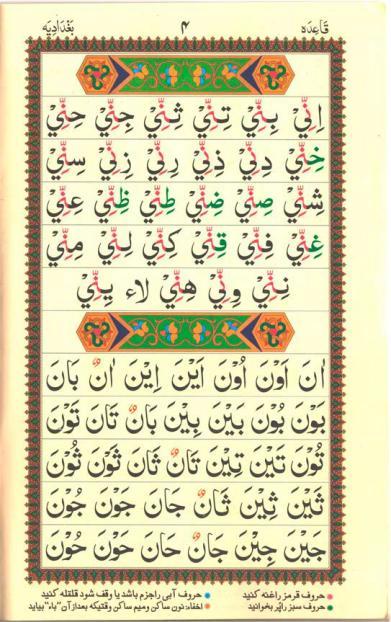 قاعده ۴ بغدادیه
اِنِّيْ بِنِّيْ تِنِّيْ ثِنِّيْ جِنِّيْ حِنِّيْ
خِنِّيْ دِنِّيْ ذِنِّيْ رِنِّيْ زِنِّيْ سِنِّيْ
شِنِّيْ صِنِّيْ ضِنِّيْ طِنِّيْ ظِنِّيْ عِنِّيْ
غِنِّيْ فِنِّيْ قِنِّيْ کِنِّيْ لِنِّيْ مِنِّيْ
نِنِّيْ وِنِّيْ هِنِّيْ لاء يِنِّيْ
اٰنَ اَوْنَ اُوْنَ اَيْنَ اِيْنَ اٰنٌ بَانَ
بَوْنَ بُوْنَ بَيْنَ بِيْنَ بَانٌ تَانَ تَوْنَ
تُوْنَ تَيْنَ تِيْنَ تَانٌ ثَانَ ثَوْنَ ثُوْنَ
ثَيْنَ ثِيْنَ ثَانٌ جَانَ جَوْنَ جُوْنَ
جَيْنَ جِيْنَ جَانٌ حَانَ حَوْنَ حُوْنَ
حروف قرمز راغنه کنید
حروف سبز راپُر بخوانید
حروف آبی راجزم باشد یا وقف شود قلقله کنید
اخفاء: نون ساکن و میم ساکن وقتیکه بعداز آن "باء" بیاید